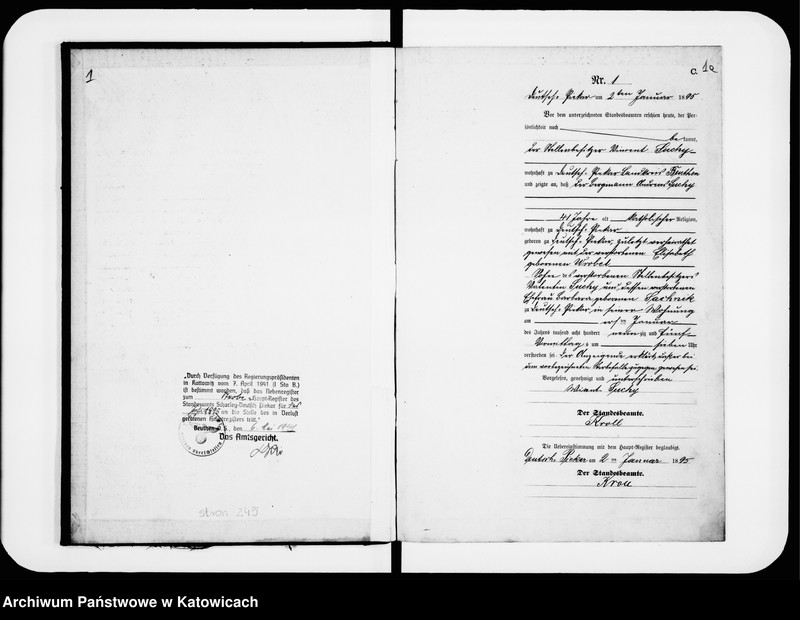 1
„Durch Verfügung des Regierungspräsidenten
in Kattowitz vom 7. April 1941 (I Sta B.)
ist bestimmt worden, daß das Nebenregister
zum Sterbe-Haupt-Register des
Standesamts Scharley-Deutsch Piekar für das
Jahr 1895 an die Stelle des in Verlust
geratenen Hauptregisters tritt."
Beuthen O.S., den 6. Mai 1941
Das Amtsgericht.
stron 245
C. 1a
Nr. 1
Deutsch Piekar am 2ten Januar 1895
Vor dem unterzeichneten Standesbeamten erschien heute, der Per-
sönlichkeit nach
be kannt,
der Stellenbesitzer Vincent Suchy
wohnhaft zu Deutsch Piekar Landkreis Beuthen
und zeigte an, daß der Bergmann Andreas Suchy
41 Jahre alt katholischer Religion,
wohnhaft zu Deutsch Piekar
geboren zu Deutsch Piekar, zuletzt verheirathet
gewesen mit der verstorbenen Elisabeth
geborenen Wrobel
Sohn des verstorbenen Stellenbesitzers
Valentin Suchy und dessen verstorbenen
Ehefrau Barbara geborenen
zu Deutsch Piekar in seiner Wohnung
am ersten Januar
des Jahres tausend acht hundert neunzig und fünf
Vormittags um sieben Uhr
verstorben sei. Der Anzeigende erklärt, daß er bei
dem vorbezeichneten Sterbefalle zugegen gewesen sei
Vorgelesen, genehmigt und unterschrieben
Vincent Suchy
Der Standesbeamte.
Kroll
Die Uebereinstimmung mit dem Haupt-Register beglaubigt.
Deutsch Piekar am 2ten Januar 1895
Der Standesbeamte.
Kroll
Archiwum Państwowe w Katowicach